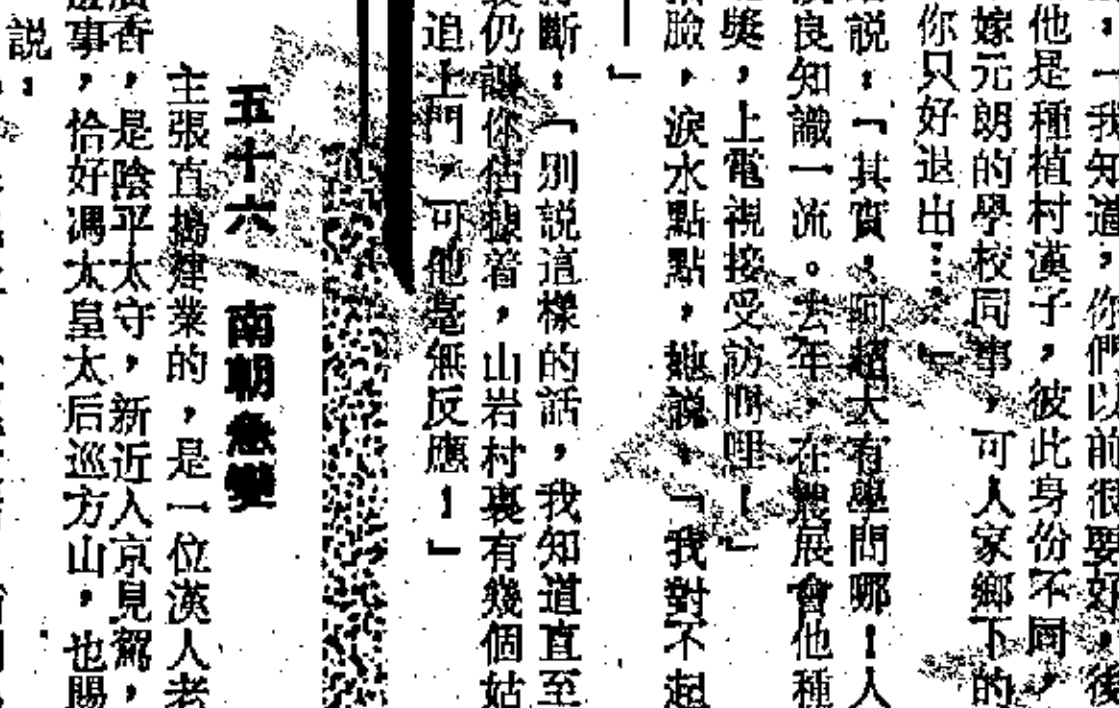 ：「我知道，你們以前很要好，後
他是種植村漢子，彼此身份不同，
嫁元朗的學校同事，可人家鄉下的
你只好退出……」
說：「其實，阿超大有學問哪！人
良知識一流。去年，在農展會他種
獎，上電視接受訪問哩！」
臉，淚水點點，她說：「我對不起
——」
斷：「別說這樣的話，我知道直至
仍讓你佔據着，山岩村裏有幾個姑
追上門，可他毫無反應！」
五十六、南朝急變
主張直搗建業的，是一位漢人老
香，是陰平太守，新近入京見駕，
事，恰好馮太皇太后巡方山，也賜
說：